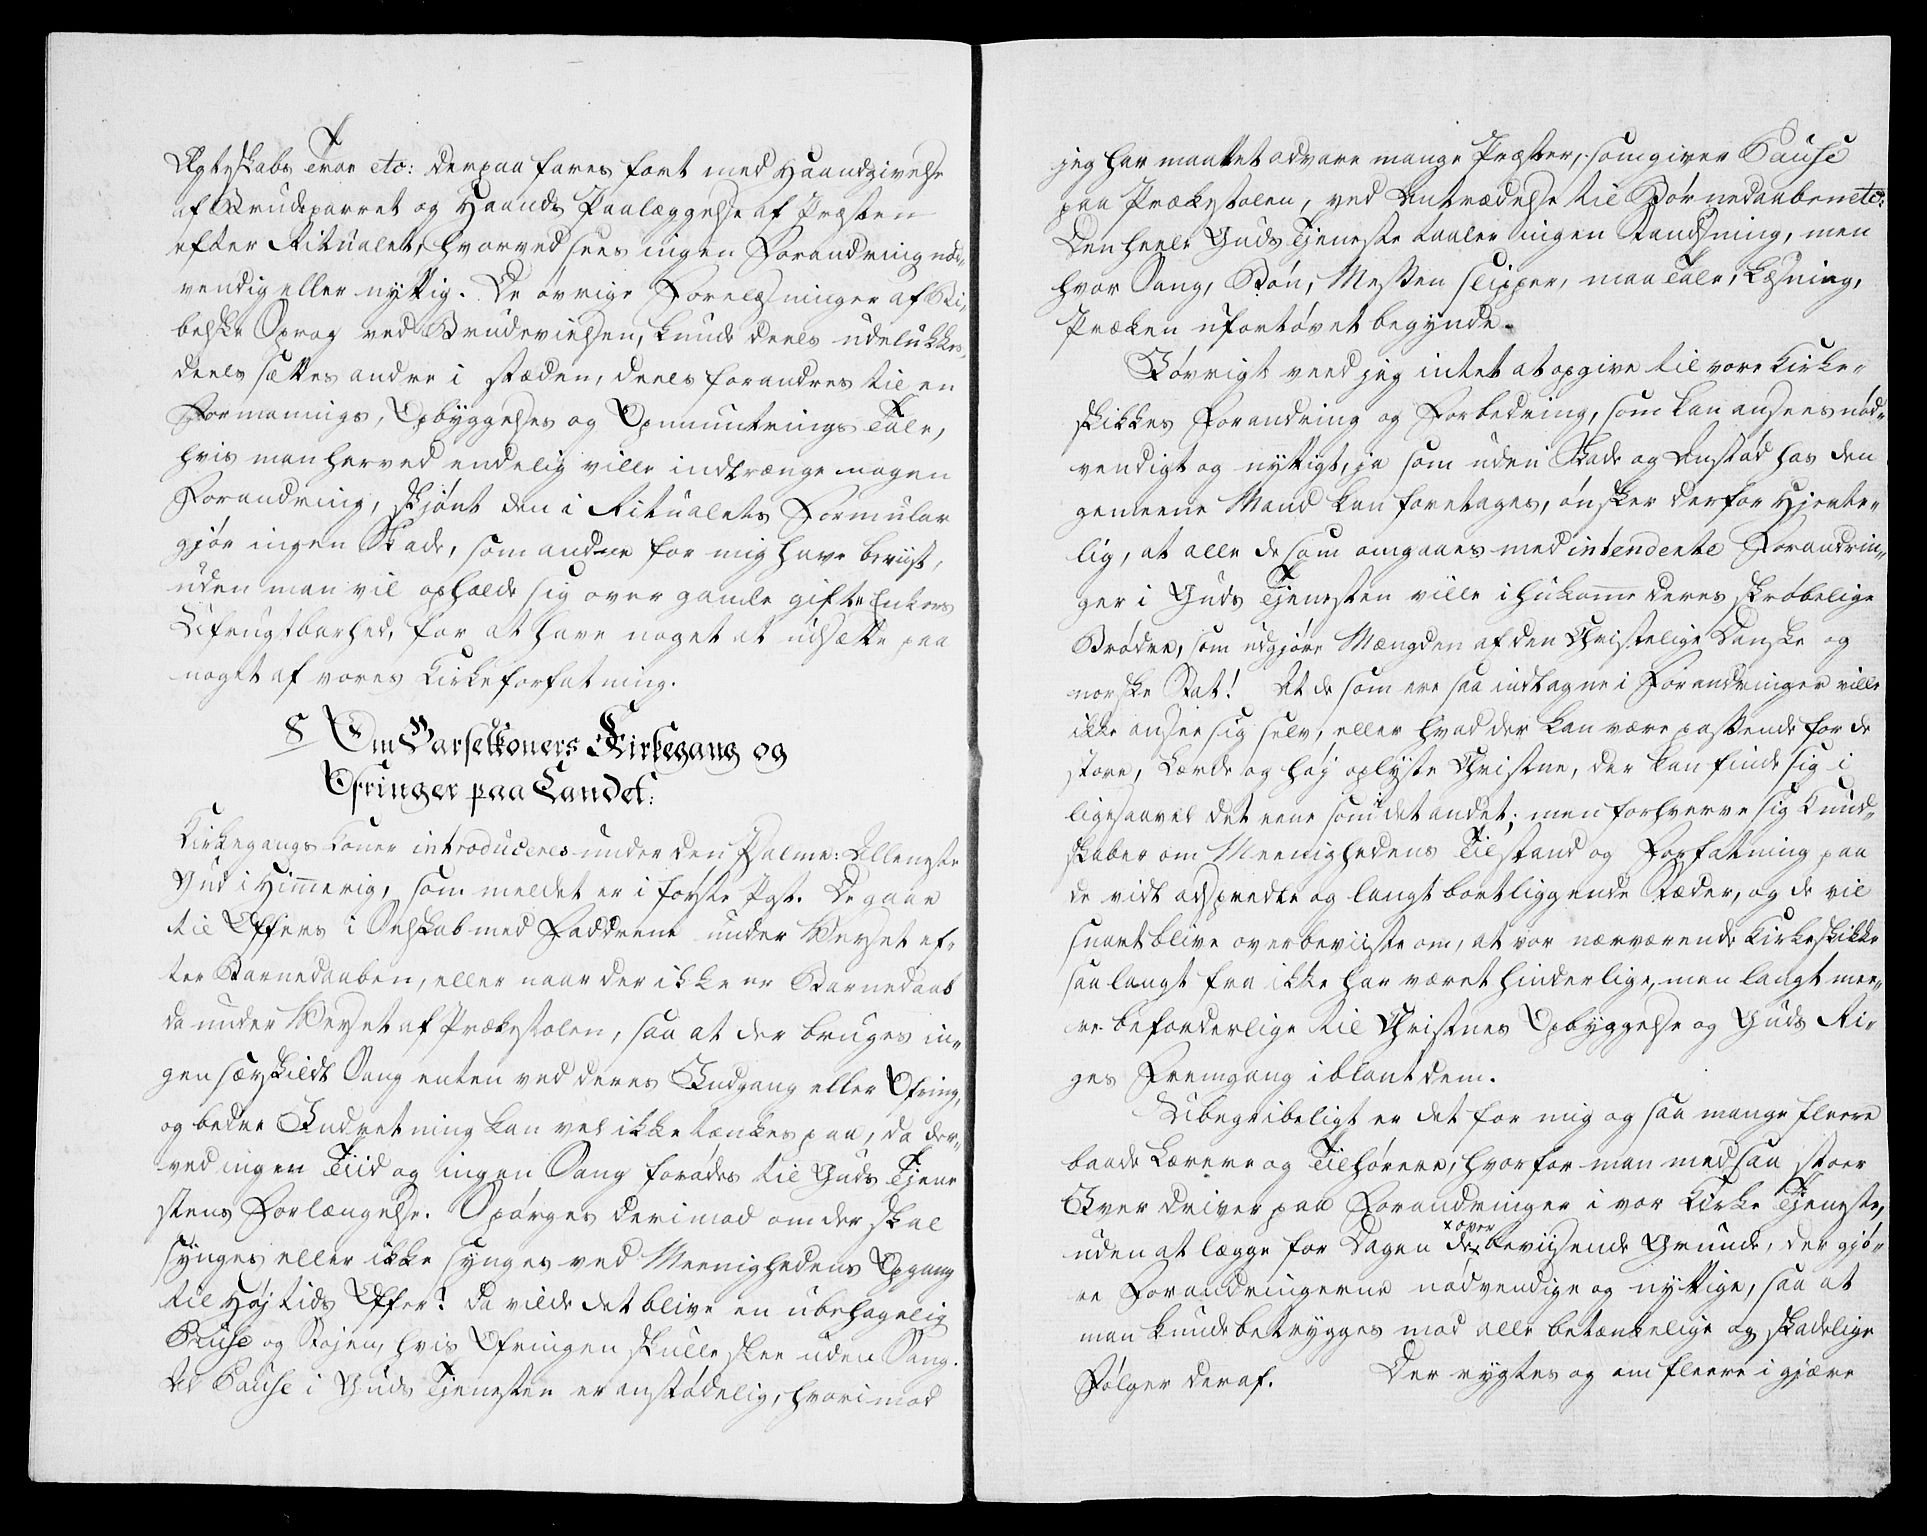 Ægteskabs Troe etc: derpaa fares fort med Haandgivelse
af Brudeparret og Haands Paalæggelse af Præsten
efter Ritualet, hvorved sees ingen Forandring nød-
vendig eller nyttig. De øvrige Forelæsninger af Bi-
belske Sprog ved Brudevielsen, kunde deels udelukkes,
deels sættes andre i stæden, deels forandres til en
Formanings, Opbyggelses og Opmuntrings Tale,
hvis man herved endelig ville indtrænge nogen
Forandring, skjønt den i Ritualets Formular
gjør ingen Skade, som andre for mig have beviist,
uden man vil opholde sig over gamle gifte Enkers
Ufrugtbarhed, for at have noget at udsætte paa
noget af vores Kirkeforfatning.
8 Om Barselkoners Kirkegang og
Ofringer paa Landet:
Kirkegangs Koner introduceres under den Psalme: Alleneste
Gud i Himmerig, som meldet er i første Pgt. De gaae
til Offers i Selskab med Faddrene under Verset ef-
ter Barnedaaben, eller naar der ikke er Barnedaab
da under Verset af Prækestolen, saa at der bruges in-
gen særskildt Sang enten ved deres Indgang eller Ofring,
og bedre Indretning kan vel ikke tænkes paa, da der-
ved ingen Tiid og ingen Sang forødes til Guds Tjene
stens Forlængelse. Spørges derimod om der skal
synges eller ikke synges ved Meenighedens Opgang
til Højtids Offer? da vilde det blive en ubehagelig
Pause og Støjen, hvis Ofringen skulle skee uden Sang.
Al Pause i Guds Tjenesten er anstødelig, hvorimod
jeg har maattet advare mange Præster, som giver Pause
paa Prækestolen, ved Antrædelse til Børnedaaben etc:
Den heele Guds Tjeneste taaler ingen Standsning, men
hvor Sang, Bøn, Messen slipper, maa Tale, Læsning,
Præken ufortøvet begynde.
I øvrigt veed jeg intet at opgive til vore Kirke-
skikkes Forandring og Forbedring, som kan ansees nød-
vendigt og nyttigt, ja som uden Skade og Anstød hos den
gemeene Mand kan foretages, ønsker derfor hjerte-
lig, at alle de som omgaaes med intendente Forandrin-
ger i Guds Tjenesten ville ihukomme deres skrøbelige
Brødre, som udgjøre Mængden af den Christelige Danske og
norske Stat! At de som ere saa indtagne i Forandringer ville
ikke ansee sig selv, eller hvad der kan være passende for de
store, Lærde og høj oplyste Christne, der kan finde sig i
ligesaavel det eene som i det andet; men forhverve sig Kund-
skaber om Meenighedens Tilstand og Forfatning paa
de vidt adspredte og langt bortliggende Stæder, og de vil
snart blive overbeviiste om, at vor nærværende Kirkeskikke
saa langt fra ikke har været hinderlige, men langt mee-
re beforderlige til Christnes Opbyggelse og Guds Ri-
ges Fremgang iblant dem.
Ubegribeligt er det for mig og saa mange fleere
baade Lærere og Tilhørere, hvorfor man med saa stoer
Iver driver paa Forandringer i vor Kirke Tjeneste,
x over
uden at lægge for Dagen de x beviisende Grunde, der gjø-
re Forandringerne nødvendige og nyttige, saa at
man kunde betrygges mod alle betænkelige og skadelige
Følger deraf. Der rygtes og om fleere i gjære